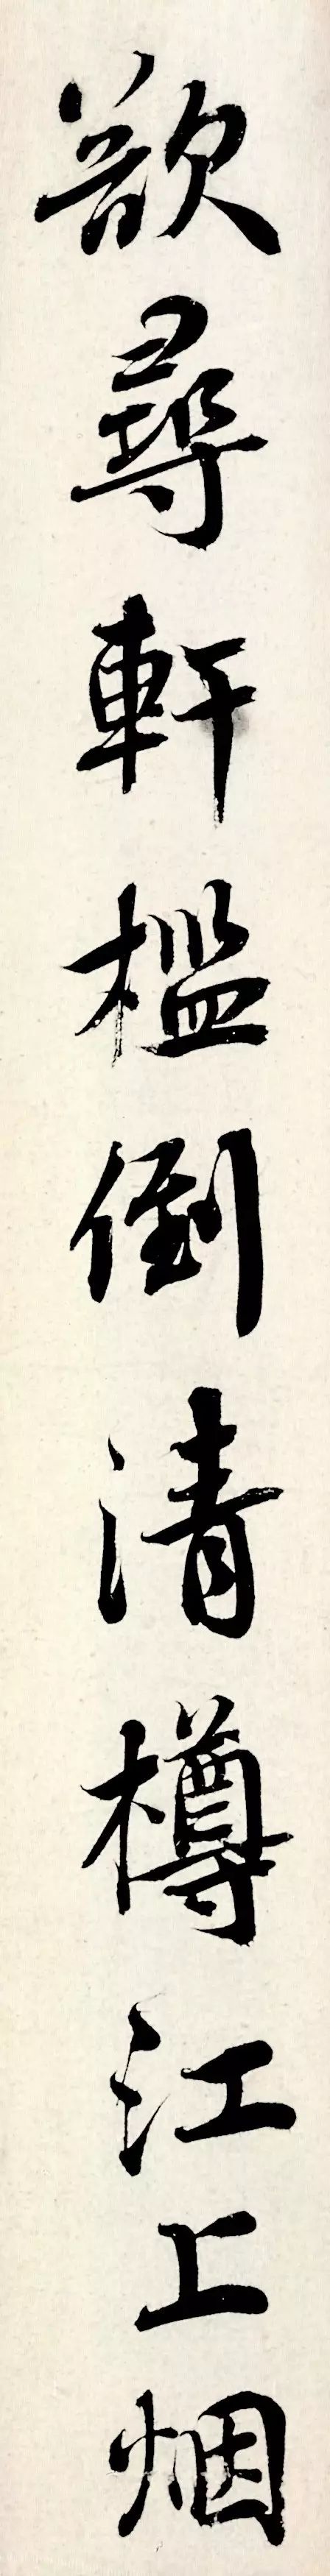 欲尋軒檻倒清樽江上烟